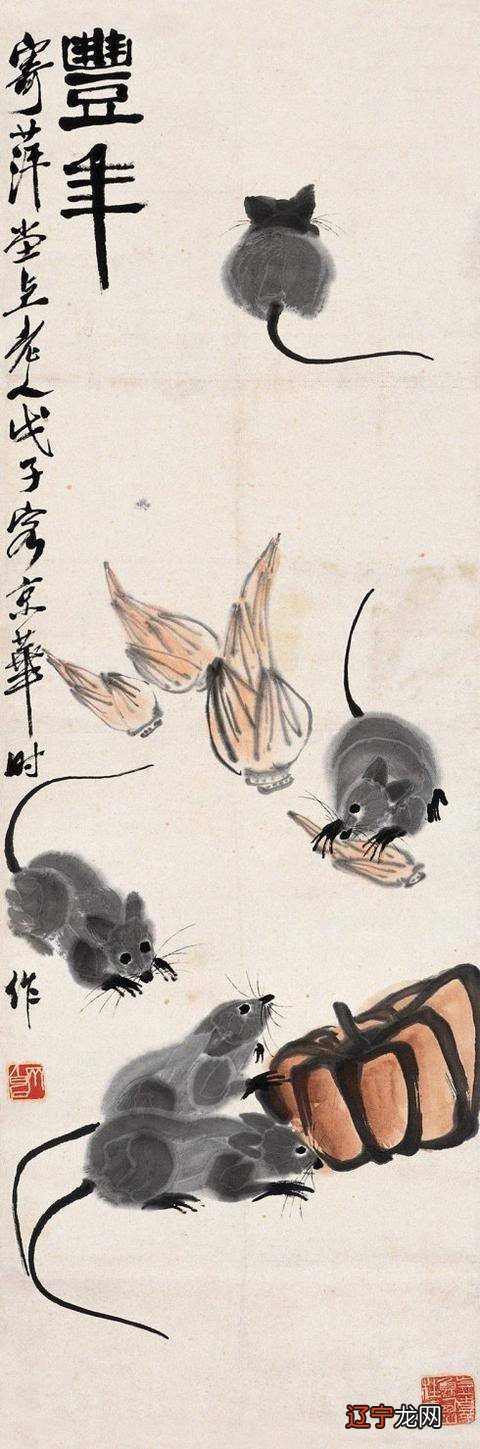 豐年
寄萍堂上老人戊子客京華时作
辽宁龙网